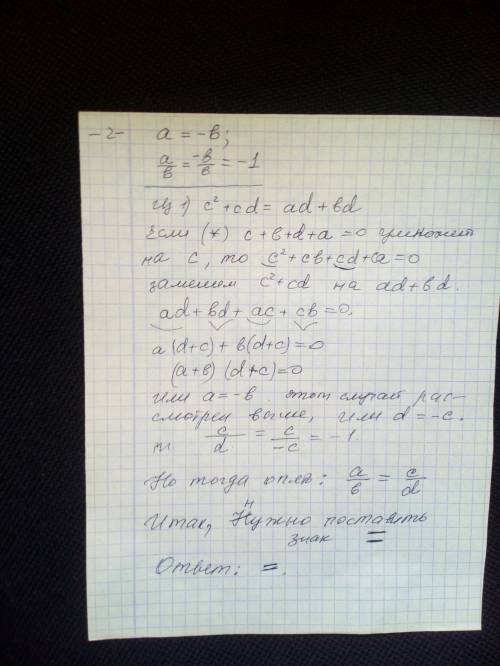 -2-
a = -b;
a/b = -b/b = -1
Из 1) c² + cd = ad + bd
Если (*) c + b + d + a = 0 умножить
на c, то c² + cb + cd + ca = 0
заменим c² + cd на ad + bd.
ad + bd + ac + cb = 0,
a(d+c) + b(d+c) = 0
(a+b)(d+c) = 0
или a = -b. этот случай рас-
смотрен выше, или d = -c.
c/d = c/-c = -1.
Но тогда опять: a/b = c/d
Итак, Нужно поставить
знак =
Ответ: =.